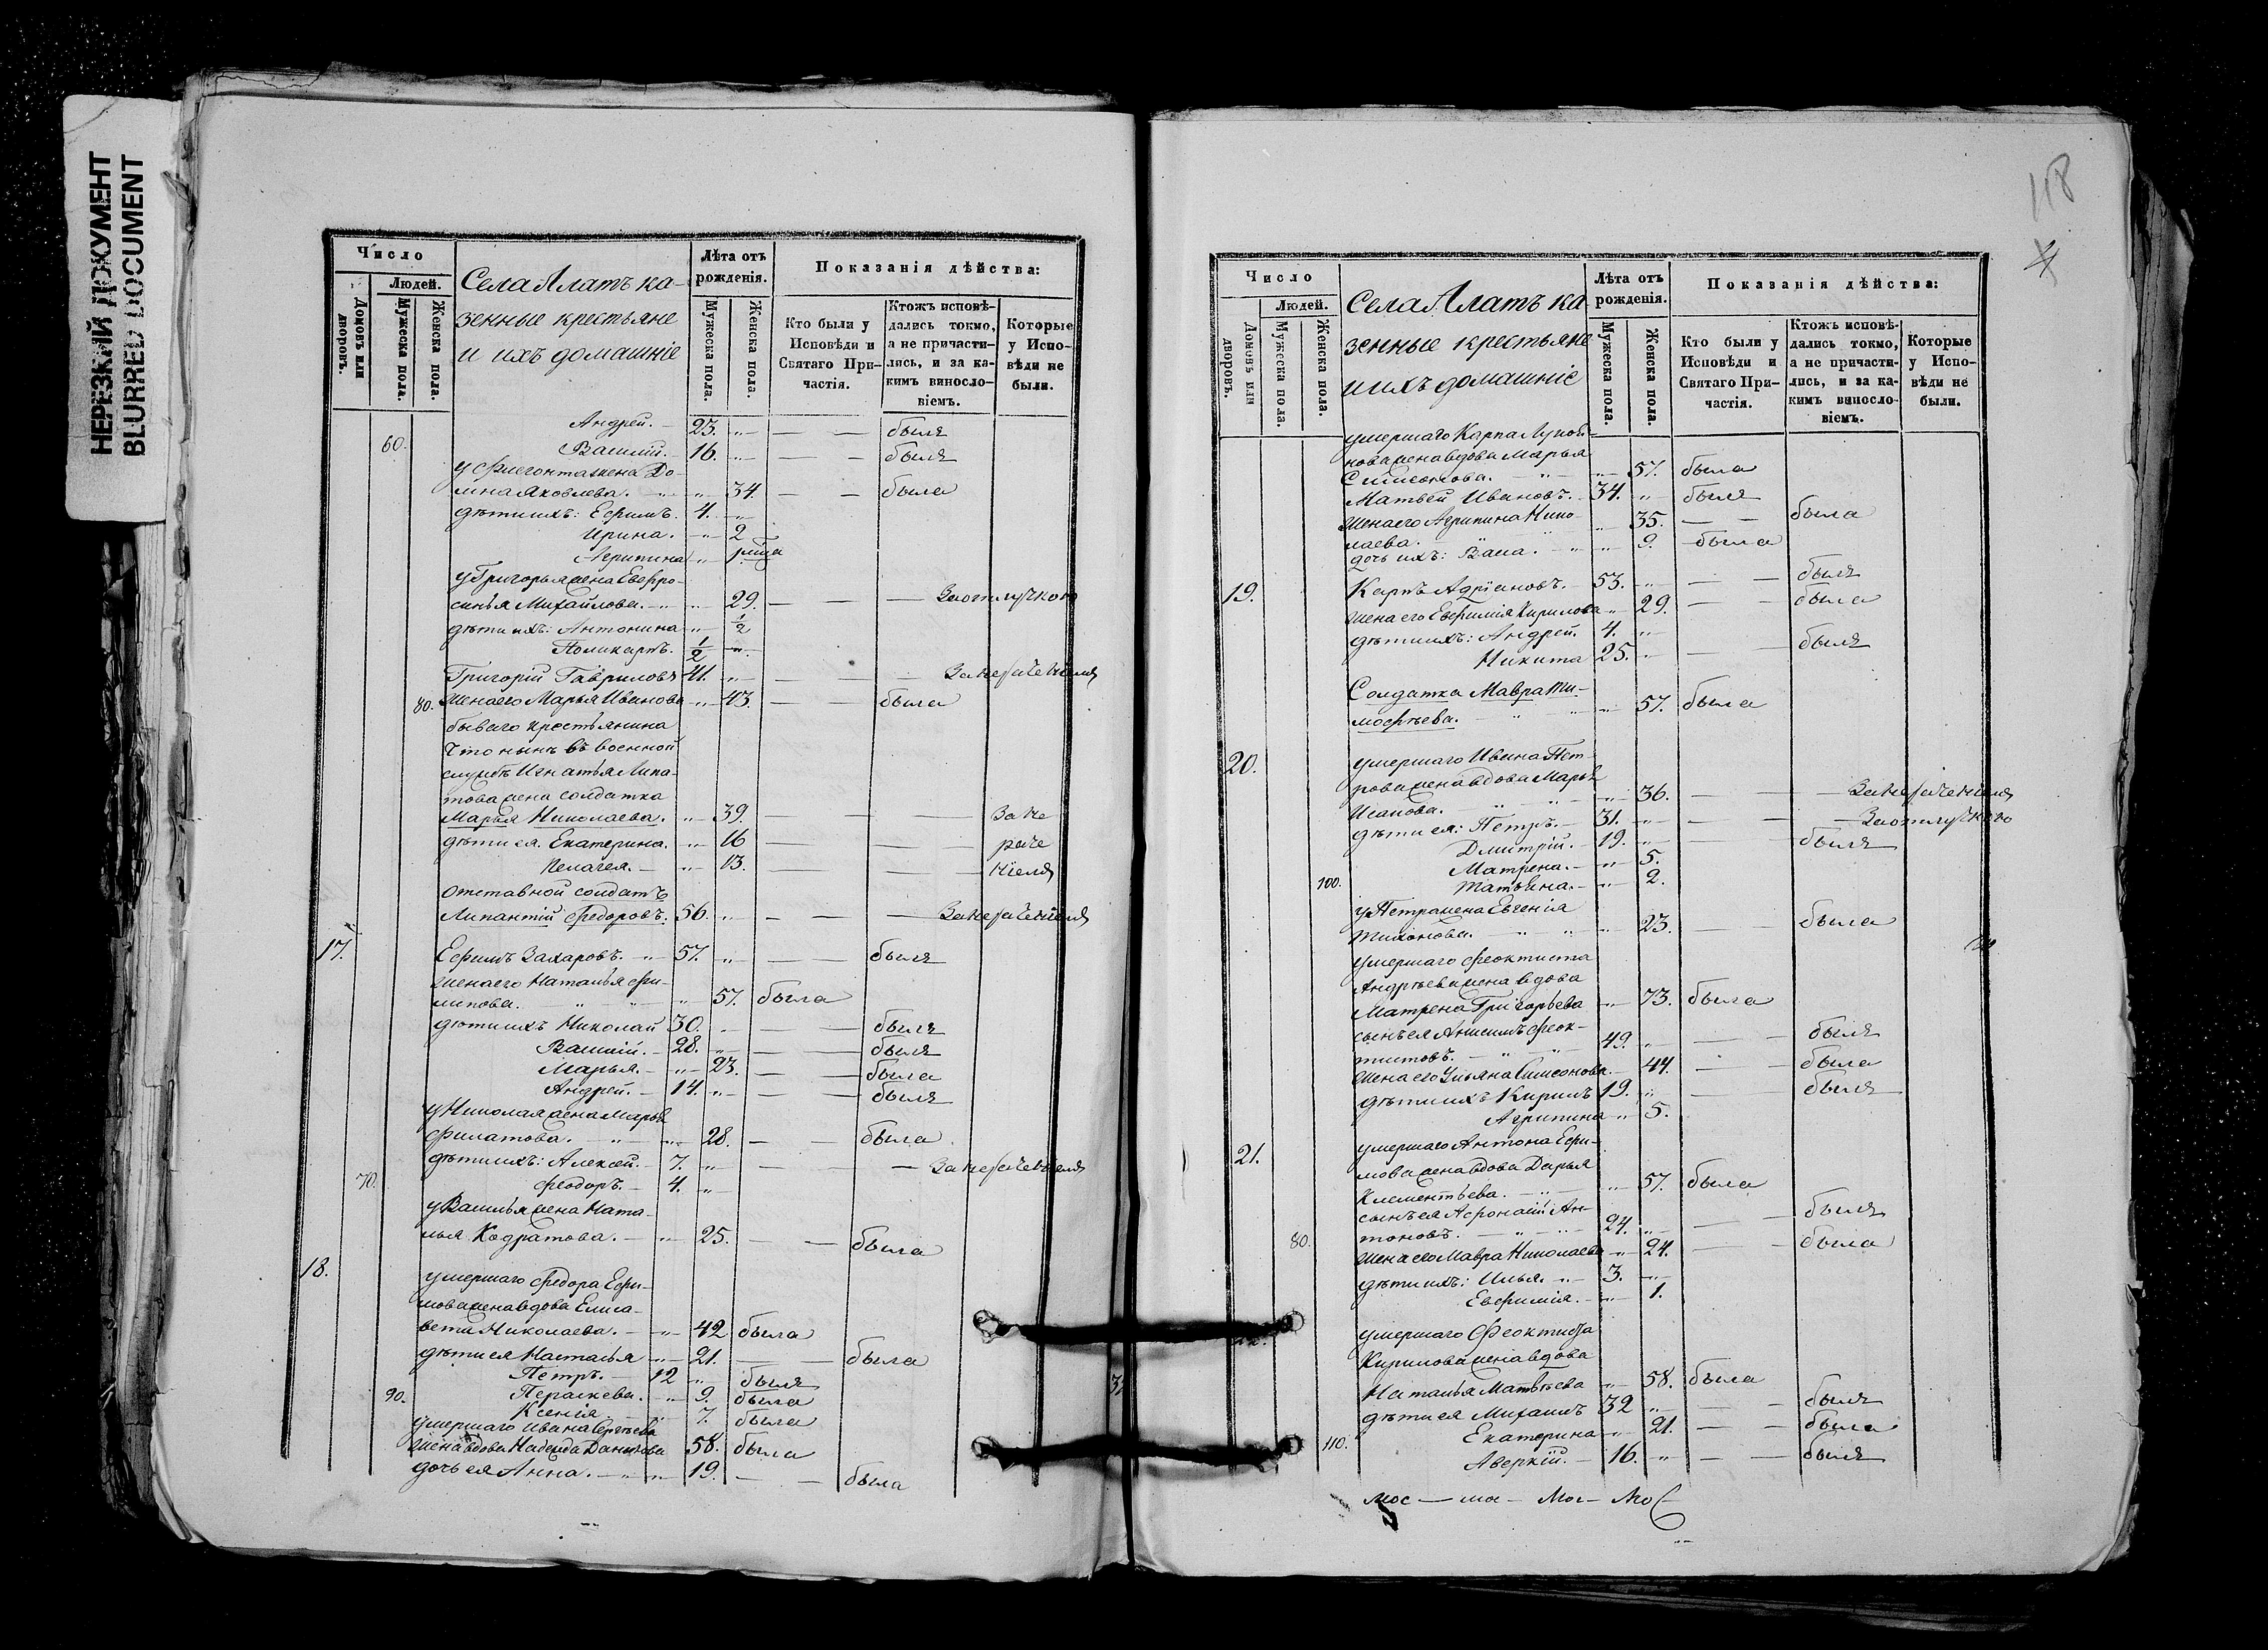 НЕРЕЗКИЙ ДОКУМЕНТ
BLURRED DOCUMENT
Число
Людей.
Домовъ или дворовъ.
Мужеска пола.
Женска пола.
Села Алатъ ка-
зенные крестьяне
и ихъ домашніе
Лѣта отъ рожденія.
Мужеска пола.
Женска пола.
Показанія дѣйства:
Кто были у Исповѣди и Святаго Причастія.
Ктожъ исповѣдались токмо, а не причастились, и за какимъ винословіемъ.
Которые у Исповѣди не были.
Андрей. 23. „ — — былъ
60. Василій. 16. „ — — былъ
у Флегонта жена До-
мна Яковлева. „ 34. — — была
дѣти ихъ: Ефимъ. 4. „
Ирина. „ 2
Агрипина „ 1
у Григорья жена Евфро-
синья Михайлова. „ 29. — — За отлучкою
дѣти ихъ: Антонина „ 1/2
Поликарпъ. 1/2 „
Григорій Гавриловъ 41. „ — — За нераченіемъ
80. Жена его Марья Иванова „ 43. — — была
бывшаго крестьянина
что нынѣ въ военной
службѣ Игнатья Липа-
това жена солдатка
Марья Николаева. „ 39. — — — За не
дѣти ея. Екатерина. „ 16 — — — раче
Пелагея. „ 13. — — — ніемъ
Отставной солдатъ
Липантій Федоровъ. 56. „ — — — За нераченіемъ
17. Ефимъ Захаровъ. 57. „ — — былъ
Жена его Наталья Фи-
липова. „ 57. была
дѣти ихъ Николай 30. „ — — былъ
Василій. 28. „ — — былъ
Марья. „ 23. — — была
Андрей. 14. „ — — былъ
у Николая жена Марья
Филатова. „ 28. — — была
дѣти ихъ: Алексей. 7. „ — — За нераченіемъ
70. Феодоръ. 4. „
у Василья жена Ната-
лья Кодратова. „ 25. — — была
18. умершаго Федора Ефи-
мова жена вдова Елиса-
вета Николаева. „ 42 была
дѣти ея Наталья „ 21. — — была
Петръ. 12 „ былъ
90. Пераскева. „ 9. была
Ксенія. „ 7. была
умершаго Ивана Сергѣева
жена вдова Надежда Данилова 58. была
дочь ея Анна. „ 19. — — была
118
4
Число
Людей.
Домовъ или дворовъ.
Мужеска пола.
Женска пола.
Села Алатъ ка
зенные крестьяне
и ихъ домашніе
Лѣта отъ рожденія.
Мужеска пола.
Женска пола.
Показанія дѣйства:
Кто были у Исповѣди и Святаго Причастія.
Ктожъ исповѣдались токмо, а не причастились, и за какимъ винословіемъ.
Которые у Исповѣди не были.
умершаго Карпа
нова жена вдова Марья
Симеонова. „ 57. была
Матвей Ивановъ. 34. „ былъ
Жена его Агрипина Нико-
лаева. „ 35. — — была
дочь ихъ: „ 9. была
19. Карпъ Адріановъ. 53. „ — — былъ
Жена его Евфимія Кирилова „ 29. — — была
дѣти ихъ: Андрей. 4. „
Никита 25. „ — — былъ
Солдатка Мавра Ти-
мофѣева. „ 57. была
20. умершаго Ивана Пет-
рова жена вдова Марья
Исакова. „ 36. — — За нераченіемъ
дѣти ея: Петръ. 31. „ — — За отлучкою
Дмитрій. 19. „ — — былъ
Матрена. „ 5.
100. Татьяна. „ 2.
у Петра жена Евгенія
Тихонова. „ 23. — — была
умершаго Феоктиста
Андрѣева жена вдова
Матрена Григорьева „ 73. была
сынъ ея Анисимъ Феок-
тистовъ. 49. „ — — былъ
Жена его Ульяна Симеонова. 44. — — была
дѣти ихъ Кирилъ 19. „ — — былъ
Агрипина „ 5.
21. умершаго Антона Ефи-
мова жена вдова Дарья
Клементьева. „ 57. была
сынъ ея Афонасій Ан-
80. тоновъ. 24. „ — — былъ
Жена его Мавра Николаева „ 24. — — была
дѣти ихъ: Илья. 3. „
Евфимія. „ 1.
22. умершаго Феоктиста
Кирилова жена вдова
Наталья Матвѣева „ 58. была
дѣти ея Михаилъ 32 „ — — былъ
110. Екатерина „ 21. — — была
Аверкій. 16. „ — — былъ